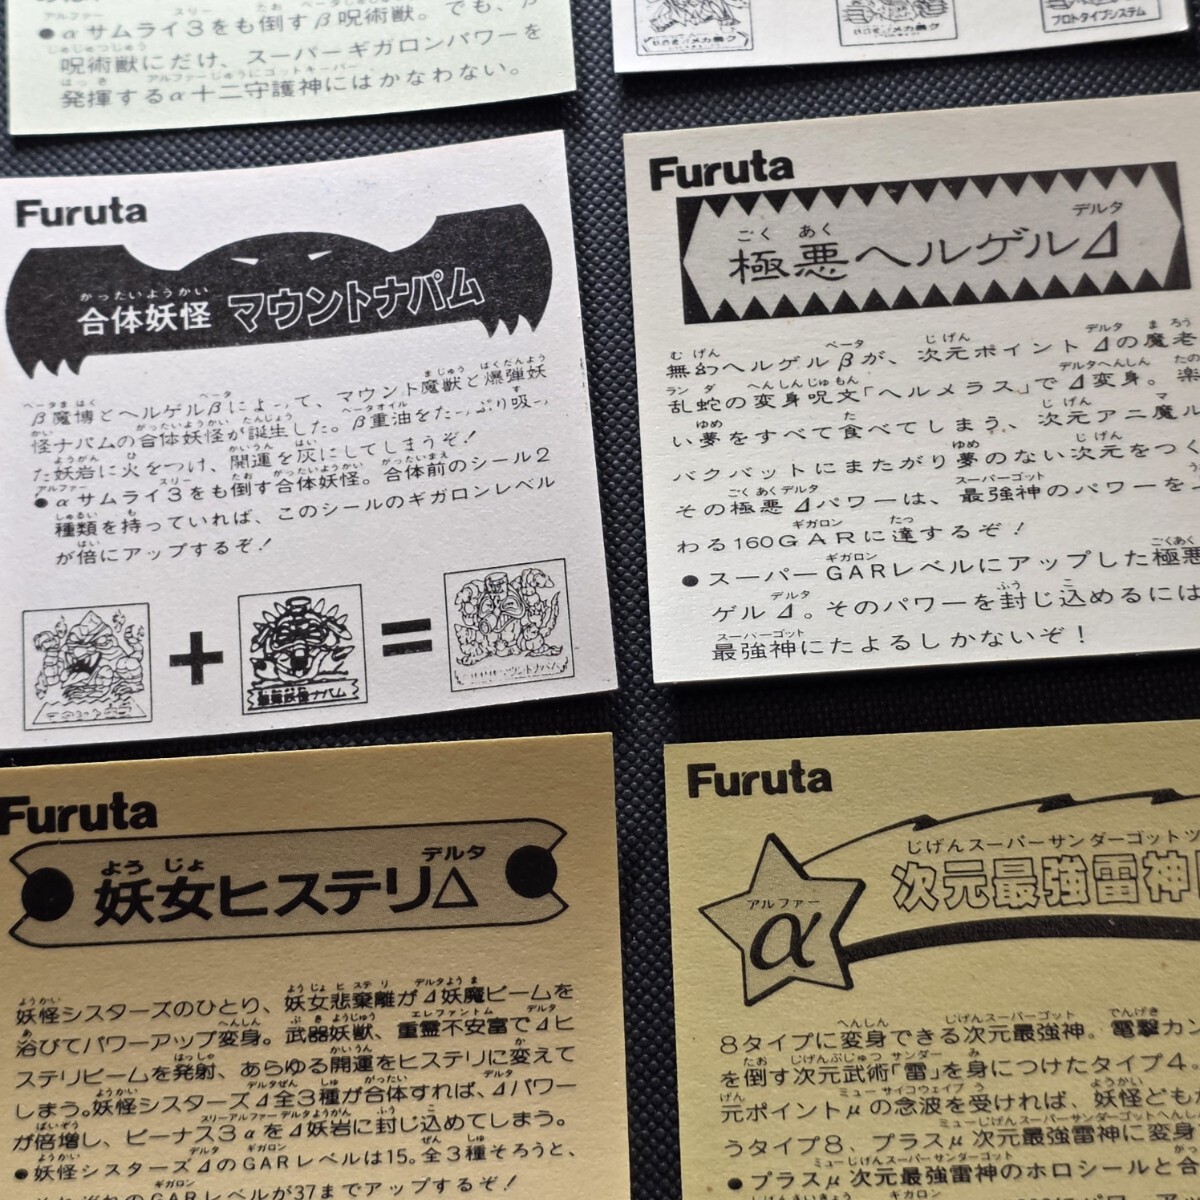 αサムライ3をも倒すβ呪術獣。でも、β
呪術獣にだけ、スーパーギガロンパワーを
発揮するα十二守護神にはかなわない。
プロトタイプシステム
Furuta
合体妖怪 マウントナパム
β魔博とヘルゲルβによって、マウント魔獣と爆弾妖
怪ナパムの合体妖怪が誕生した。β重油をたっぷり吸っ
た妖岩に火をつけ、開運を灰にしてしまうぞ!
●αサムライ3をも倒す合体妖怪。合体前のシール2
種類を持っていれば、このシールのギガロンレベル
が倍にアップするぞ!
+ =
爆弾妖怪ナパム
Furuta
極悪ヘルゲルΔ
無幻ヘルゲルβが、次元ポイントΔの魔老
乱蛇の変身呪文「ヘルメラス」でΔ変身。楽
い夢をすべて食べてしまう、次元アニ魔ル
バクバットにまたがり夢のない次元をつく
その極悪Δパワーは、最強神のパワーを上
わる160GARに達するぞ!
●スーパーGARレベルにアップした極悪
ゲルΔ。そのパワーを封じ込めるには
最強神にたよるしかないぞ!
Furuta
妖女ヒステリΔ
妖怪シスターズのひとり、妖女悲棄離がΔ妖魔ビームを
浴びてパワーアップ変身。武器妖獣、重霊不安富でΔヒ
ステリビームを発射、あらゆる開運をヒステリに変えて
しまう。妖怪シスターズΔ全3種が合体すれば、Δパワー
が倍増し、ビーナス3αをΔ妖岩に封じ込めてしまう。
●妖怪シスターズΔのGARレベルは15。全3種そろうと、
それぞれのGARレベルが37までアップするぞ!
Furuta
α 次元最強雷神
8タイプに変身できる次元最強神。電撃カン
を倒す次元武術「雷」を身につけたタイプ4。
元ポイントμの念波を受ければ、妖怪どもが
うタイプ8、プラスμ次元最強雷神に変身
●プラスμ次元最強雷神のホロシールと合